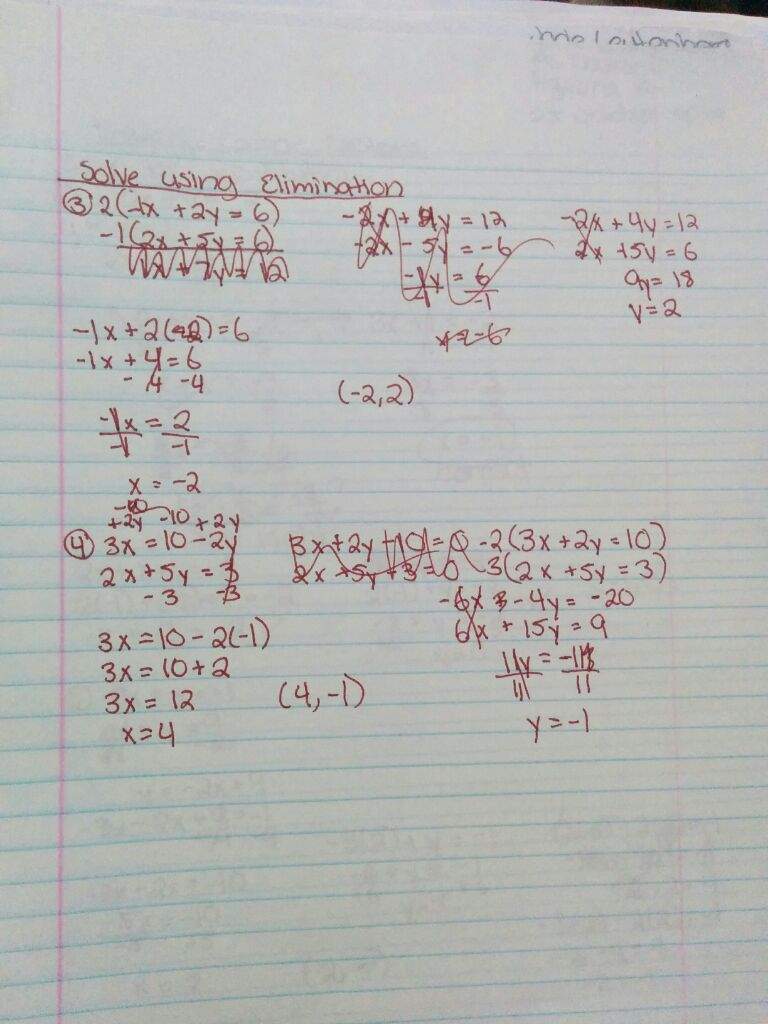 Solve using Elimination
③ 2(-1x + 2y = 6)
-1(2x + 5y = 6)
-2x + 4y = 12
-2x - 5y = -6
-1y = 6
-1 -1
-2x + 4y = 12
2x + 5y = 6
9y = 18
y = 2
-1x + 2(2) = 6
-1x + 4 = 6
- 4 -4
-1x = 2
-1 -1
x = -2
(-2, 2)
+2y -10 + 2y
④ 3x = 10 - 2y
2x + 5y = 3
- 3 -3
3x + 2y - 10 = 0
2x + 5y + 3 = 0
-2(3x + 2y = 10)
3(2x + 5y = 3)
-6x - 4y = -20
6x + 15y = 9
11y = -11
11 11
y = -1
3x = 10 - 2(-1)
3x = 10 + 2
3x = 12
x = 4
(4, -1)